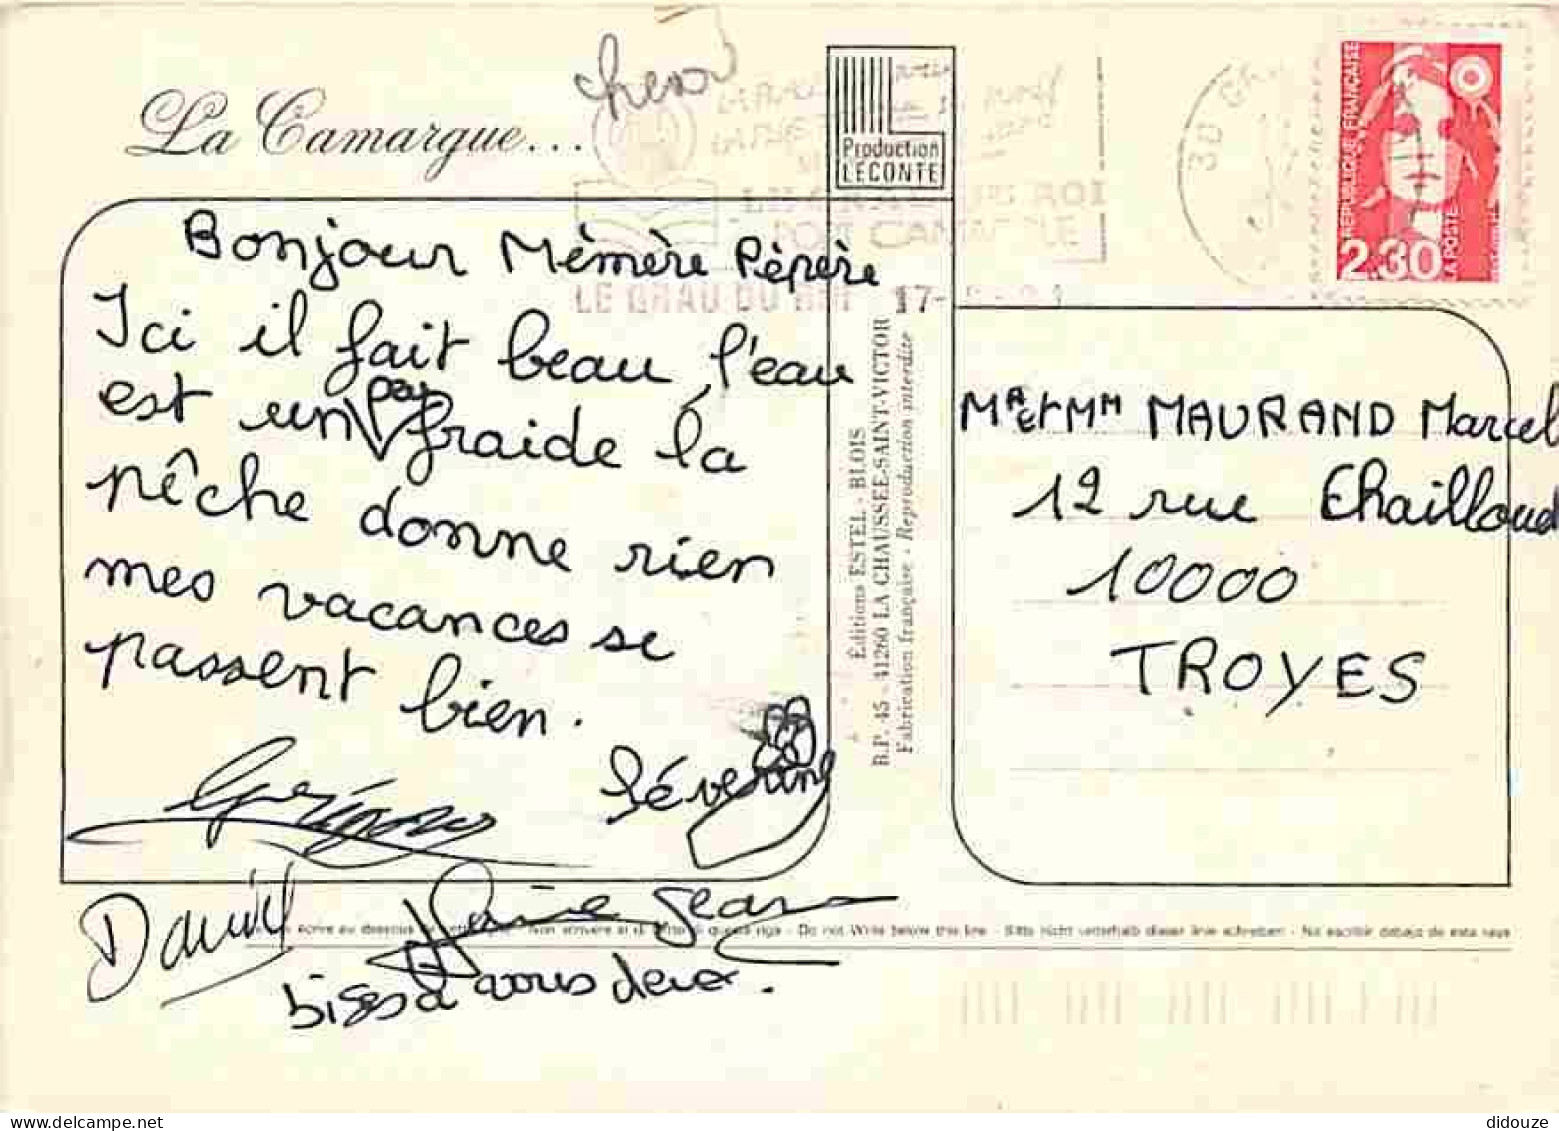 La Camargue...
Production
LECONTE
LE GRAU DU ROI
PORT CAMARGUE
LE GRAU DU ROI 17-
30 G
REPUBLIQUE FRANÇAISE
2,30
LA POSTE
Bonjour Mémère Pépère
Ici il fait beau, l'eau
est un peu fraide la
pêche donne rien
mes vacances se
passent bien.
Grégory Séverine
David Marie Jean
bises à vous deux.
Éditions ESTEL - BLOIS
B.P. 45 - 41260 LA CHAUSSÉE-SAINT-VICTOR
Fabrication française - Reproduction interdite
Mr et Mm MAURAND Marcel
12 rue Chaillouet
10000
TROYES
écrire au dessous de cette ligne - Non scrivere al di sotto di questa riga - Do not Write below this line - Bitte nicht unterhalb dieser linie schreiben - No escribir debajo de esta raya
didouze